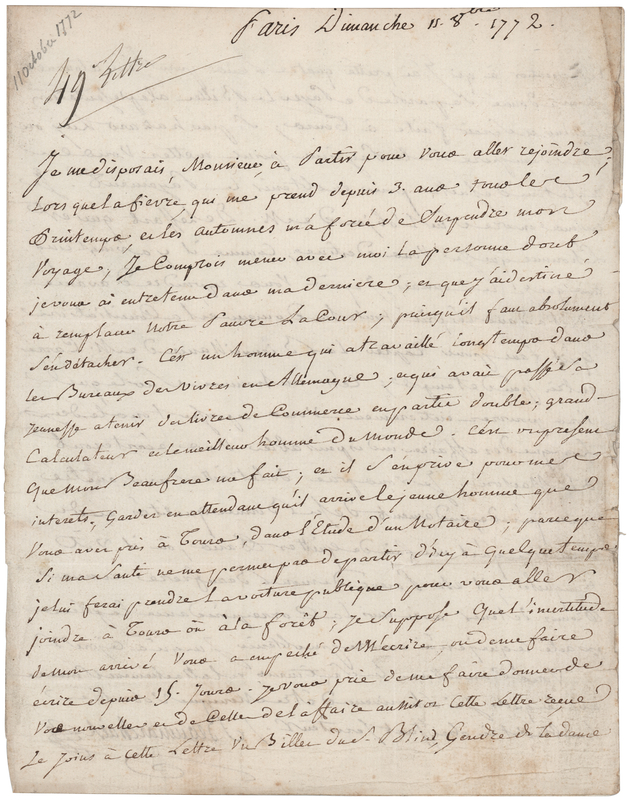 11 October 1772
Paris Dimanche 11. 8.bre 1772.
49 Lettre
Je me disposais, Monsieur, à Partir pour vous aller rejoindre,
Lorsque La fievre, qui me prend depuis 3. ans tous les
Printemps et les automnes m'a forcé de Surpendre mon
Voyage; Je Comptois mener avec moi La personne dont
je vous ai entretenu dans ma derniere; et que j'ai destiné
à remplacer Notre Pauvre La Cour; puisqu'il faut absolument
S'en détacher. C'est un homme qui a travaillé longtemps dans
les Bureaux des vivres en Allemagne; et qui avait passé Sa
Jeunesse a tenir des livres de Commerce en partie double; grand
Calculateur et le meilleur homme du Monde. C'est un present
Que Mon Beaufrere me fait; et il s'en prive pour mes
interets; Garder en attendant qu'il arrive le jeune homme que
Vous avez pris à Tours, dans l'Etude d'un Notaire; parceque
Si ma Santé ne me permet pas de partir d'icy à Quelque temps
je lui ferai prendre La voiture publique pour vous aller
joindre à Tours ou à la forêt; Je Suppose Que L'incertitude
de mon arrivé Vous a empeché de M'écrire, ou de me faire
écrire depuis 15. Jours. Je vous prie de me faire donner de
Vos nouvelles et de Celle de l'affaire aussitot Cette Lettre recue
Je Joins à Cette Lettre Un Billet du S. Blind, Gendre de la dame